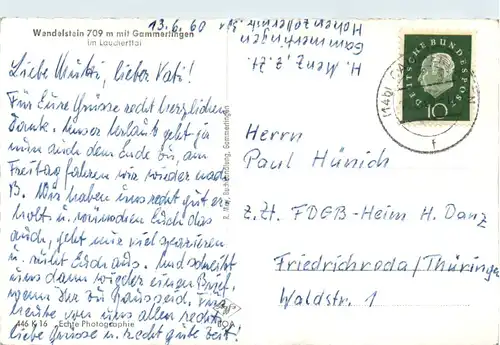 Wandelstein 709 m mit Gammertingen
im Laucherttal
13.6.60
H. Menz, z.Zt.
Gammertingen
Hohenzollernstr.
DEUTSCHE BUNDESPOST
10
(14b)
f
Liebe Mutti, lieber Vati!
Für Eure Grüsse recht herzlichen
Dank. Unser Urlaub geht ja
nun auch dem Ende zu, am
Freitag fahren wir wieder nach
B. Wir haben uns recht gut er-
holt u. wünschen Euch das
auch, geht nur viel spazieren
u. ruht Euch aus. Und schreibt
uns dann wieder einen Brief,
wenn Ihr zu Haus seid. Für
heute von uns allen recht
liebe Grüsse u. recht gute Zeit!
Herrn
Paul Hünich
z.Zt. FDGB-Heim H. Danz
Friedrichroda/Thüringen
Waldstr. 1
Buchhandlung, Gammertingen
446 K 16 Echte Photographie